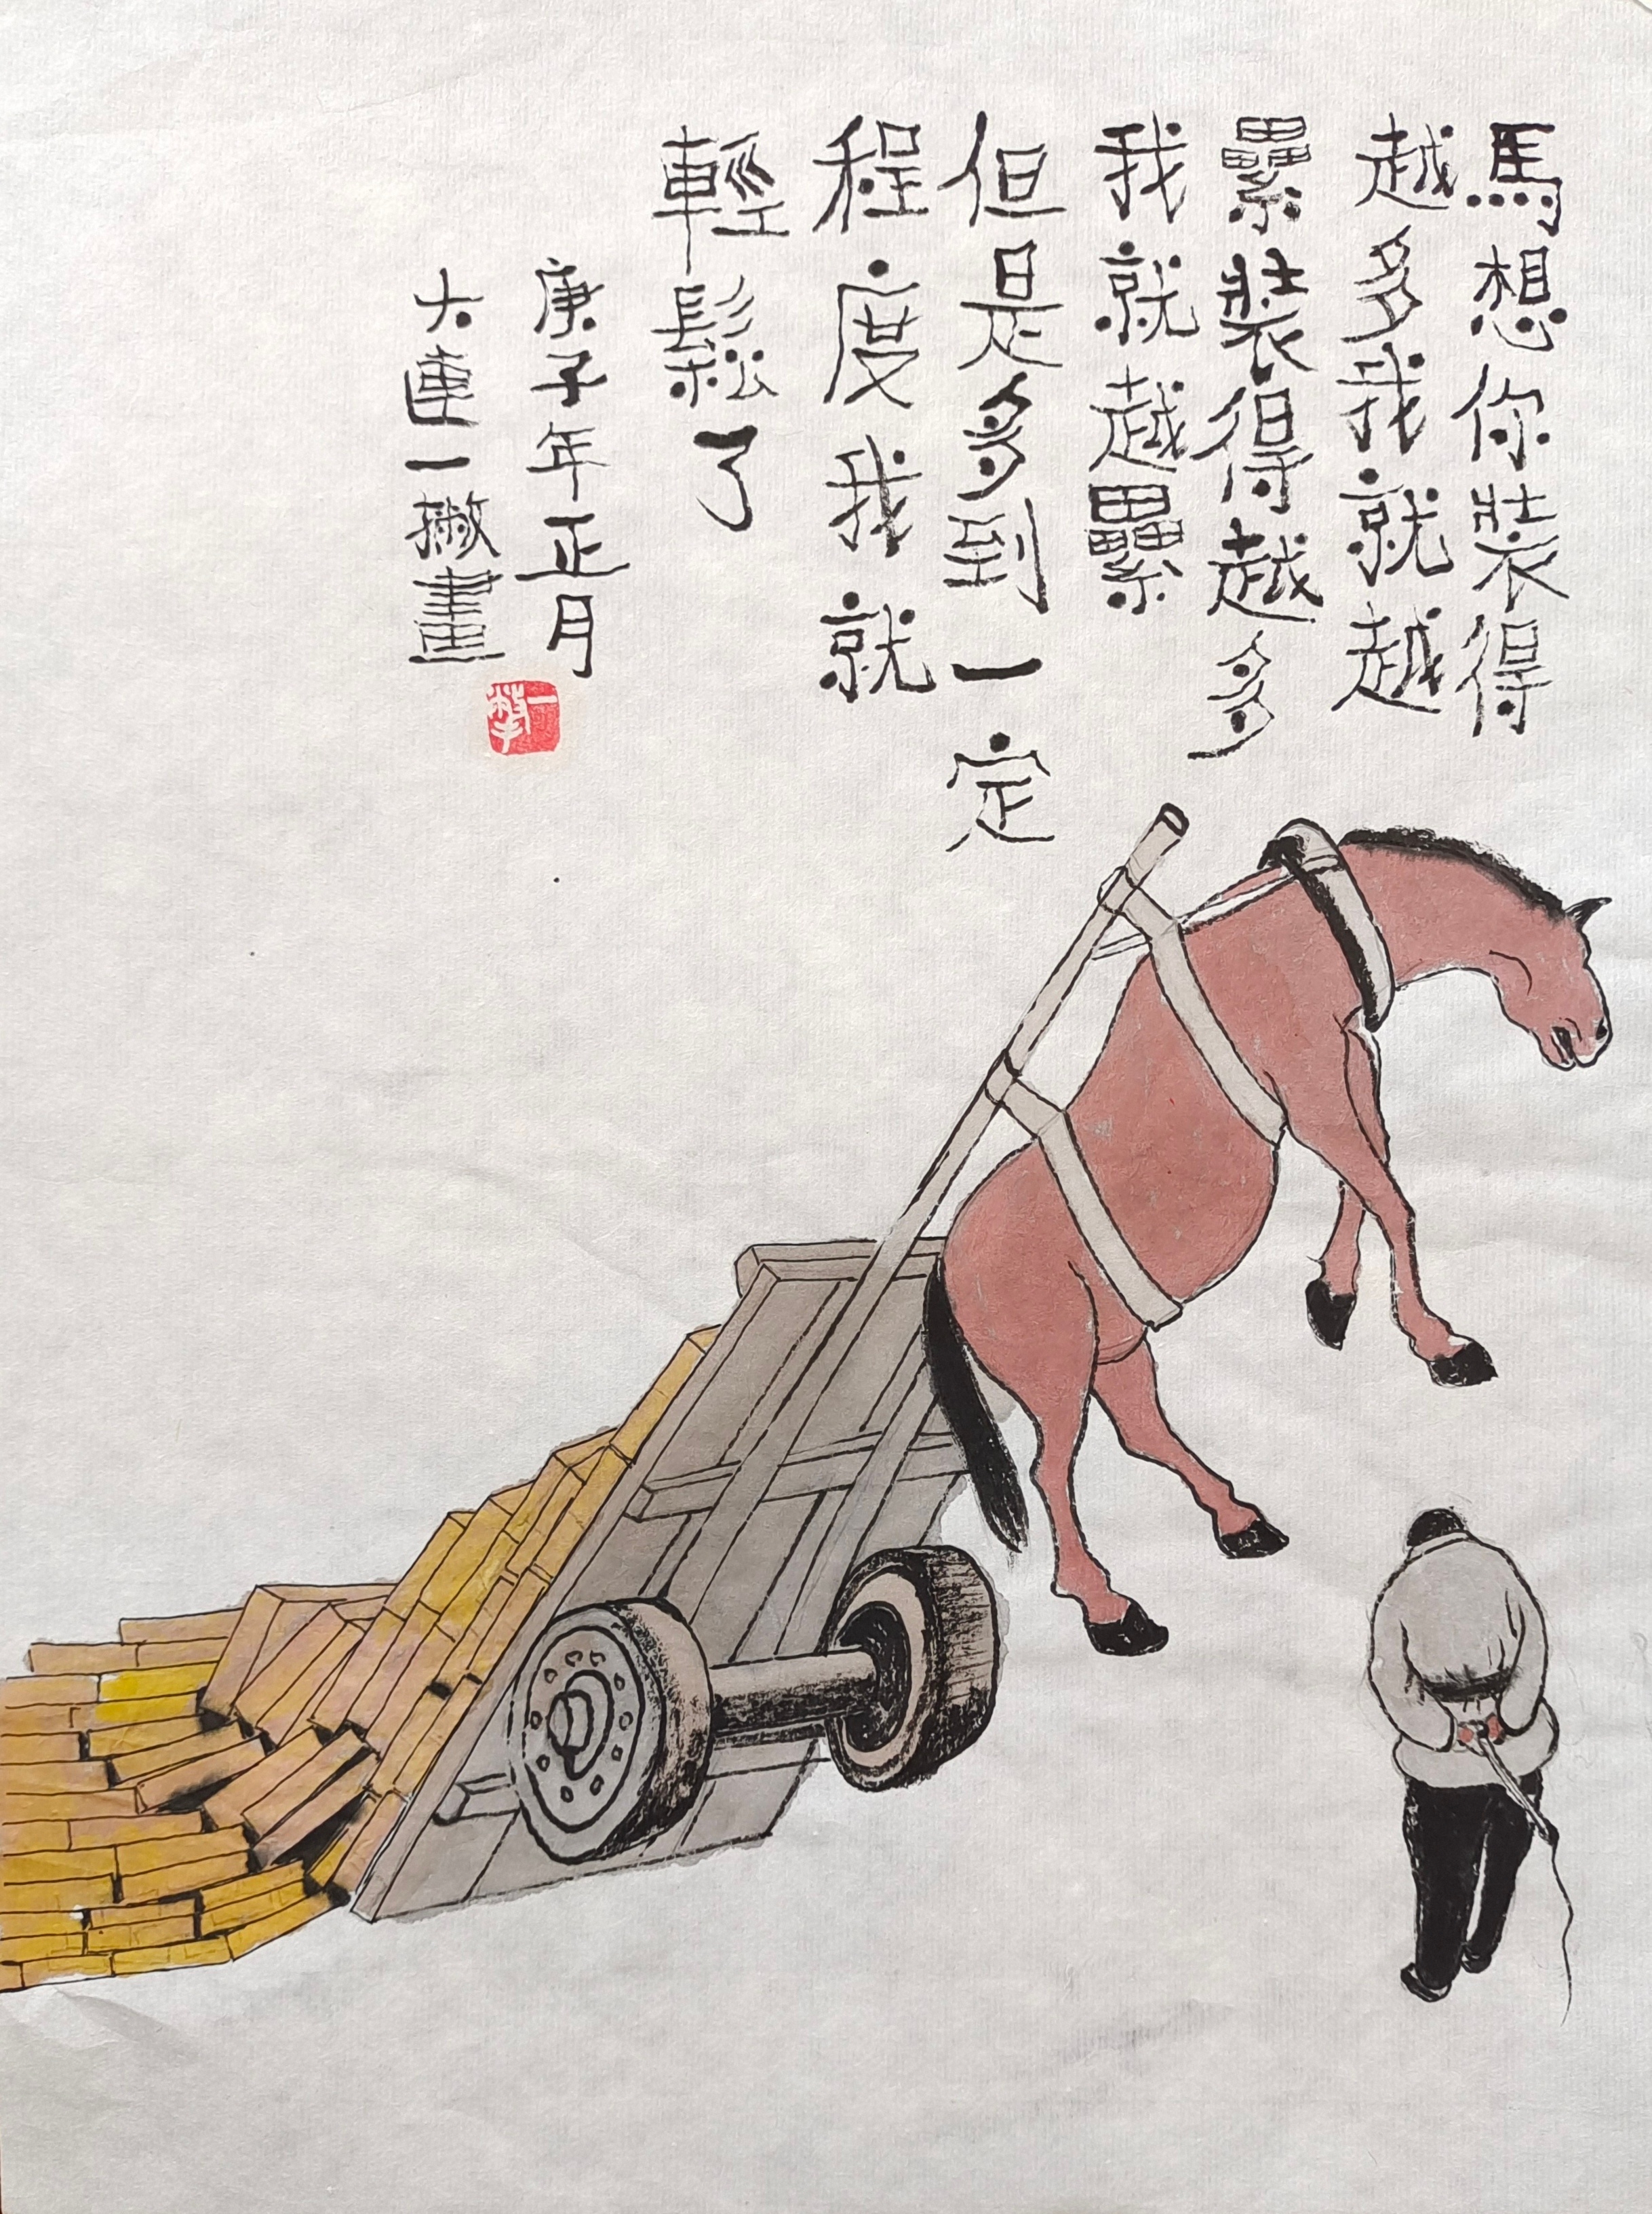 馬想你裝得
越多我就越
纍裝得越多
我就越纍
但是多到一定
程度我就
輕鬆了
庚子年正月
大連一撇畫
一撆